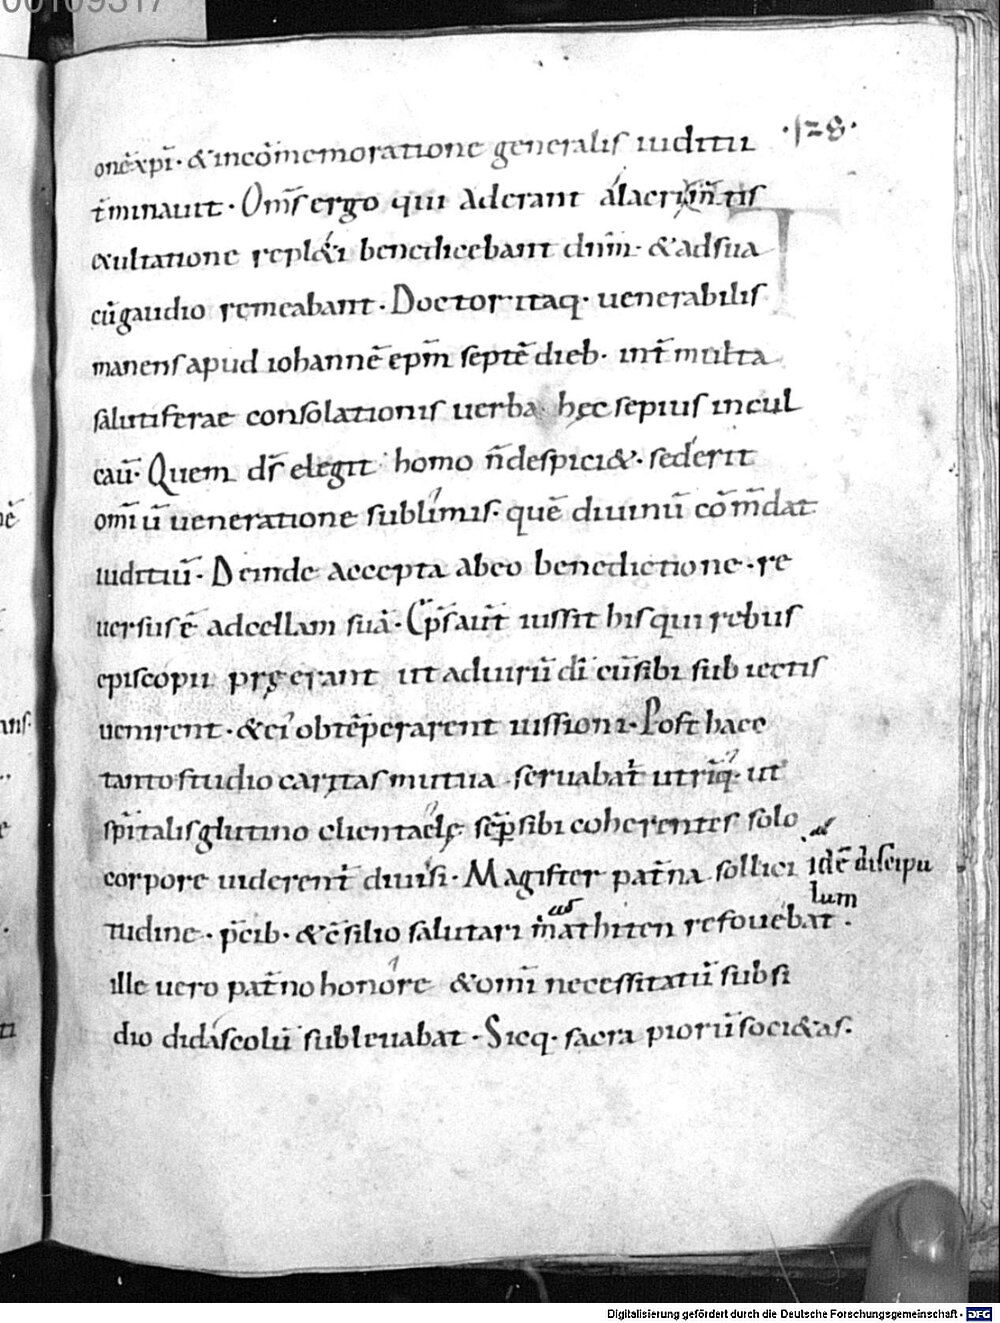 ·128·
onē xpi̅· & in cōmemoratione generalis iuditii
t̄minauit· Om̅s ergo qui aderant alacri m̅tis
exultatione repl&i benedicebant dn̅m· & ad sua
cū gaudio remeabant· Doctor itaq· uenerabilis
manens apud iohannē ep̅m septē dieb· int̄ multa
salutiferae consolationis uerba hęc sepius incul
cau̅· Quem d̅s elegit homo n̅ despici&· sederit
om̅iū ueneratione sublimis· quē diuinū cōm̅dat
iuditiū· Deinde accepta ab eo benedictione· re
uersus ē ad cellam suā· Ep̅s au̅t iussit his qui rebus
episcopii pręerant ut ad uirū di̅ cū sibi subiectis
uenirent· & ei obtēperarent iussioni· Post haec
tanto studio caritas mutua seruabat̄ utriq· ut
sp̅italis glutino clientaelę sēp sibi coherentes solo
corpore uiderent̄ diuisi· Magister pat̄na sollici
idē discipu
lum
tudine· p̄cib· & c̄silio salutari mathiten refouebat·
us
ille uero pat̄no honore & om̅i necessitatū subsi
dio didascolū subleuabat· Sicq· sacra piorū soci&as·
Digitalisierung gefördert durch die Deutsche Forschungsgemeinschaft - DFG